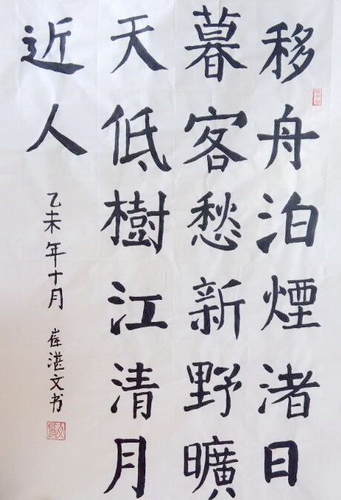 移舟泊煙渚日
暮客愁新野曠
天低樹江清月
近人
乙未年十月 崔湛文书